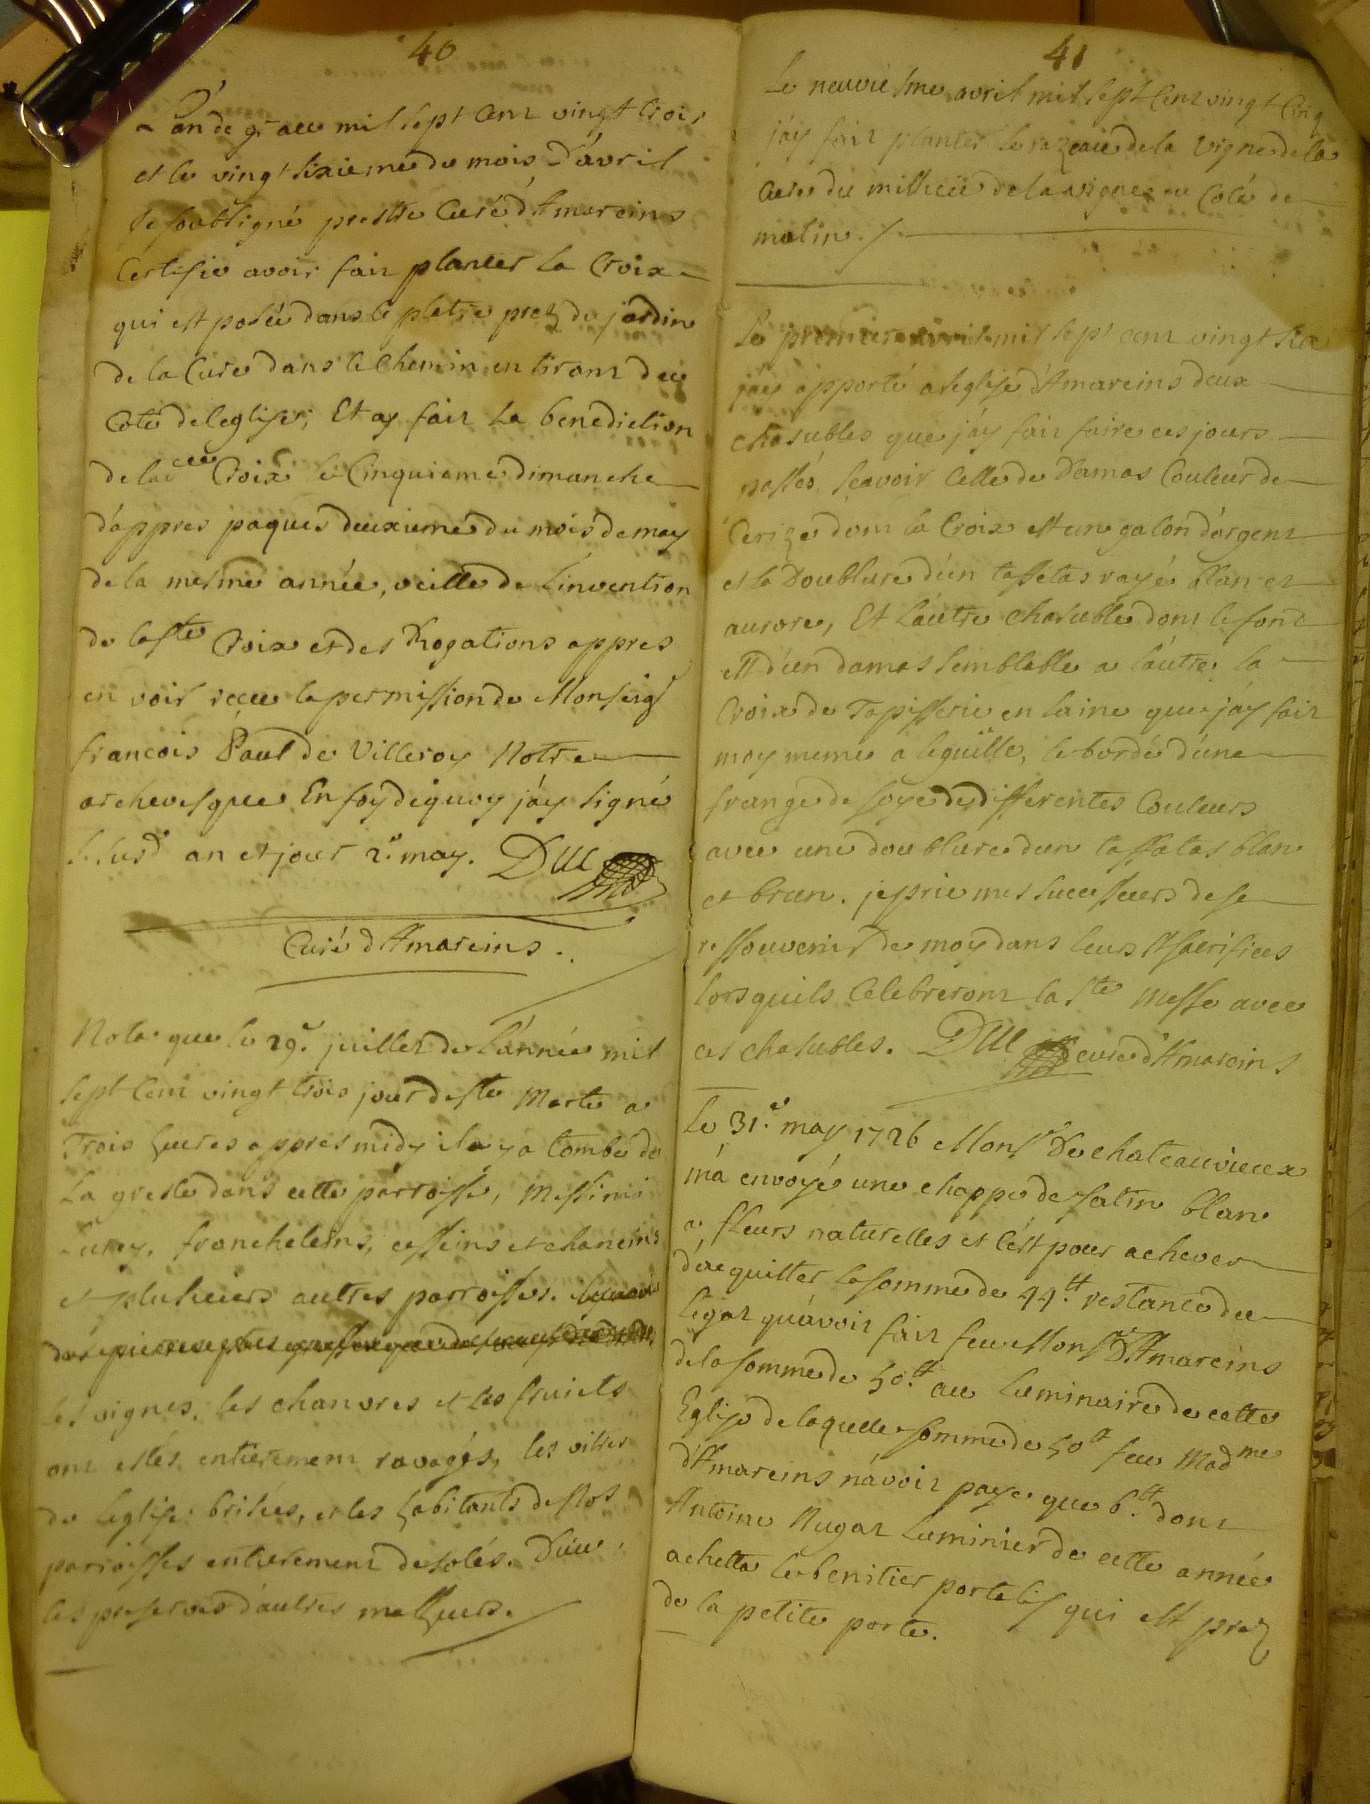 40
L'an de grace mil sept cent vingt trois
et le vingt sixieme du mois d'avril
Je soubsigné prestre Curé d'Amareins
Certifie avoir fair planter la Croix
qui est posée dans le platre prez du jardin
de la Cure dans le Chemin en tirant du
Coté de leglise, Et ay fair la benediction
de lad Croix le Cinquieme dimanche
d'appres paques deuxieme du mois de may
de la mesme année, veille de L'invention
de la Ste Croix et des Rogations appres
en voir receu la permission de Monseigr
francois Paul de Villeroy Notre
archevesque En foy de quoy j'ay signé
Lesusd an et jour 2e may. DUC
Curé d'Amareins.
Nota que le 29e juillet de L'année mil
sept Cent vingt trois jour de Ste Marte a
Trois heures appres midy il y a tombé de
La gresle dans cette parroisse, Messimi
Lurcy, francheleins, cesseins et chaneins
et plusieurs autres parroisses.
les vignes, les chanvres et les fruicts
ont estés entierement ravagés, les vitres
de leglise brisées, et les habitants desnos
parroisses entierement desolés. Dieu
les preserve d'autres malheurs.
41
Le neuvieme avril mil sept Cent vingt Cinq
j'ay fair planter le de la vigne de la
Cure du millieu de la vigne au Coté de
matin.
Le premier avril mil sept cent vingt six
j'ay apporté a leglise d'Amareins deux
chasubles que j'ay fair faire ces jours
passés, scavoir Celle de Damas Couleur de
Cerize dont la Croix est un galon d'argent
et la Doublure d'un taffetas rayé blan et
aurore, Et L'autre chasuble dont le fond
est d'un damas semblable a l'autre, la
Croix de Tapisserie en laine que j'ay fair
moy meme a leguille, le bordé d'une
frange de soye de differentes Couleurs
avec une doublure d'un taffatas blan
et brun. je prie mes successeurs de se
ressouvenir de moy dans leurs Sts sacrifices
lorsquils Celebreront la Ste Messe avec
ces chasubles. DUC curé d'Amareins
Le 31e may 1726 Monsr De chateauvieux
m'a envoyé une chappe de satin blan
a fleurs naturelles et c'est pour achever
d'acquitter la somme de 44tt restance du
legat qu'avoir fair feu Monsr D'Amareins
de la somme de 50tt au Luminaire de cette
Eglise de laquelle somme de 50tt feu Madme
d'Amareins n'avoir payé que 6tt dont
Antoine Nugat Luminier de cette année
achetta le benitier portatif qui est prez
de la petite porte.